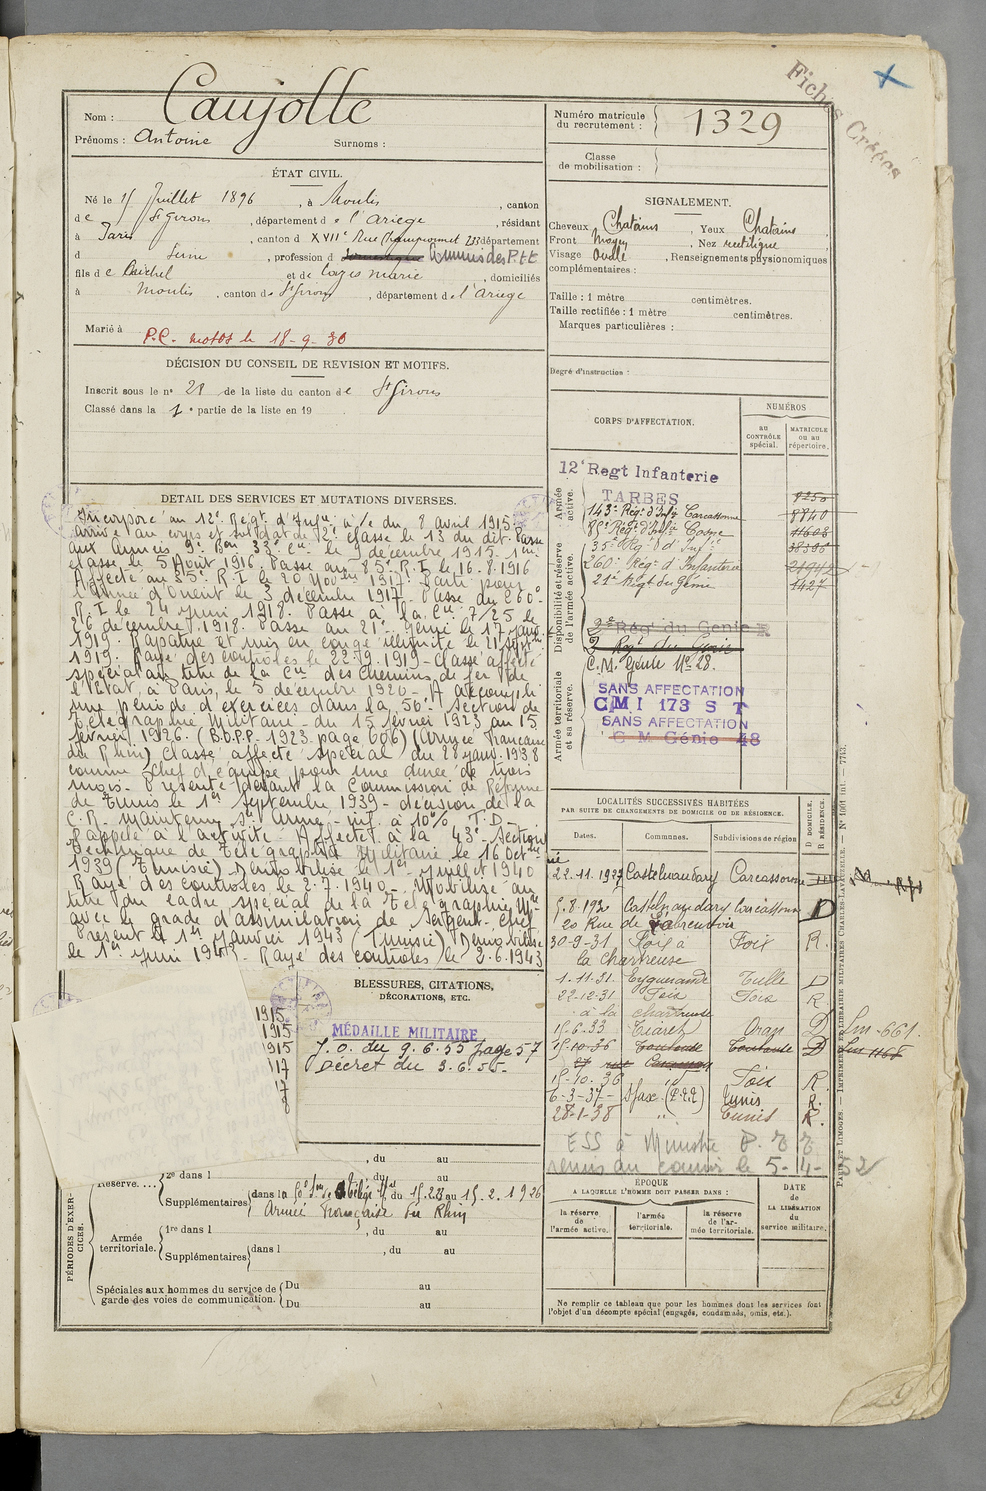 Fiches Créées
Nom : Caujolle
Prénoms : Antoine Surnoms :
Numéro matricule du recrutement : 1329
Classe de mobilisation :
ÉTAT CIVIL.
Né le 15 Juillet 1896, à Moulis, canton
de St Girons, département de l'Ariège, résidant
à Paris, canton d XVIIe Rue Championnet 233 département
d Seine, profession d Commis des P.T.T.
fils de Michel et de Marie, domiciliés
à Moulis, canton de St Girons, département de l'Ariège
Marié à
P.C. motos le 18-9-30
DÉCISION DU CONSEIL DE REVISION ET MOTIFS.
Inscrit sous le n° 21 de la liste du canton de St Girons
Classé dans la 1e partie de la liste en 19
SIGNALEMENT.
Cheveux Chatains, Yeux Chatains
Front Moyen, Nez rectiligne
Visage Ovale, Renseignements physionomiques
complémentaires :
Taille : 1 mètre centimètres.
Taille rectifiée : 1 mètre centimètres.
Marques particulières :
Degré d'instruction :
DETAIL DES SERVICES ET MUTATIONS DIVERSES.
Incorporé au 12e Régt d'Infie à/c du 8 avril 1915.
arrivé au corps et soldat de 2e classe le 13 du dit. Passé
aux Armées 9e Bon 33e Cie le 9 décembre 1915. 1ère
classe le 5 Août 1916. Passé au 85e R.I. le 16.8.1916
Affecté au 35e R.I. le 20 Novbre 1917. Parti pour
l'Armée d'Orient le 3 décembre 1917. Passé du 260e
R.I. le 24 juin 1918. Passé à la Cie 7/25 le
26 décembre 1918. Passé au 21e Génie le 17 janv.
1919. Rapatrié et mis en congé illimité le 21 septbre
1919. Rayé des controles le 22.9.1919 - Classé affecté
spécial au titre de la Cie des Chemins de fer de
l'Etat, à Paris, le 5 décembre 1920 - A accompli
une période d'exercices dans la 50e Section de
Télégraphie Militaire du 15 février 1923 au 15
février 1926. (B.O.P.P. 1923 page 606) (Armée Française
du Rhin) Classé affecté spécial du 28 janv. 1938
comme chef d'équipe pour une durée de trois
mois. Présenté devant la Commission de Réforme
de Tunis le 1er Septembre 1939 - décision de la
C.R. maintenu Sce Armé - inf. à 10% T.D -
Rappelé à l'activité. Affecté à la 43e Section
Technique de Télégraphie Militaire le 16 Octbre
1939 (Tunisie) - Démobilisé le 1er juillet 1940
Rayé des controles le 2.7.1940 - Mobilisé au
titre du cadre spécial de la Télégraphie Mre
avec le grade d'assimilation de Sergent-Chef
Présent le 1er Janvier 1943 (Tunisie) Démobilisé
le 1er juin 1943. Rayé des controles le 2.6.1943
CORPS D'AFFECTATION.
NUMÉROS
au CONTRÔLE spécial.
MATRICULE ou au répertoire.
Armée active.
12e Regt Infanterie
TARBES
9250
143e Régt d'Infie Carcassonne 8840
85e Régt d'Infie Cosne 11608
Disponibilité et réserve de l'armée active.
35e Régt d'Infie 38385
260e Régt d'Infanterie
21e Régt du Génie 1427
2e Rég' du Genie
2e Régt du Génie
C.M. Génie No 28.
Armée territoriale et sa réserve.
SANS AFFECTATION
CMI 173 S T
SANS AFFECTATION
C M Génie 48
LOCALITÉS SUCCESSIVES HABITÉES
PAR SUITE DE CHANGEMENTS DE DOMICILE OU DE RÉSIDENCE.
Dates. Communes. Subdivisions de région
D DOMICILE. R RÉSIDENCE.
22-11.1927 Castelnaudary Carcassonne
5.8.192 Castelnaudary Carcassonne D
20 Rue de
30-9-31 Foix à Foix R.
la Chartreuse
1.11.31. Eygurande Tulle D
22-12-31 Foix Foix R.
à la Chartreuse
15.6.33 Tiaret Oran D Sur-661.
15-10-36 Toulouse Toulouse D
15-10.36 " Foix R.
6-3-37- Sfax (P.T.T) Tunis R.
28-1-38 " Tunis R.
ESS à Ministre P.T.T
renvs au courrs le 5-14-52
BLESSURES, CITATIONS,
DÉCORATIONS, ETC.
MÉDAILLE MILITAIRE
J.O. du 9.6.55 page 57
Décret du 3.6.55-
1915
1915
1915
17
17
8
PÉRIODES D'EXERCICES.
, du au
Réserve....
2e dans l , du au
Supplémentaires dans la 50e Son de Télégie Mre du 15.2.23 au 15.2.1926
Armée Française du Rhin
Armée territoriale.
1re dans l , du au
Supplémentaires dans l , du au
Spéciales aux hommes du service de garde des voies de communication.
Du au
Du au
ÉPOQUE
A LAQUELLE L'HOMME DOIT PASSER DANS :
la réserve de l'armée active.
l'armée territoriale.
la réserve de l'armée territoriale.
DATE DE LA LIBÉRATION du service militaire.
Ne remplir ce tableau que pour les hommes dont les services font
l'objet d'un décompte spécial (engagés, condamnés, omis, etc.).
PARIS ET LIMOGES. — IMPRIMERIE LIBRAIRIE MILITAIRES CHARLES-LAVAUZELLE. — No 1001 int. — 7743.